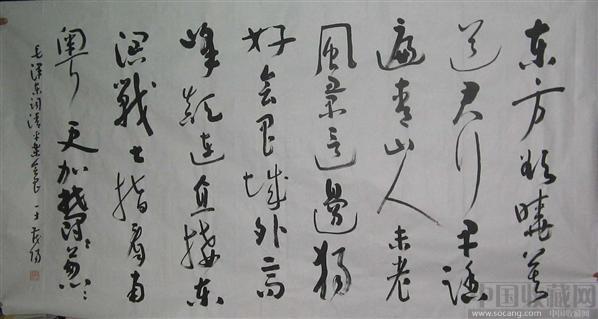 东方欲曉莫
道君行早踏
遍青山人未老
風景這邊獨
好会昌城外高
峰颠连直接东
溟戰士指看南
粤更加鬱々葱々
毛泽东词清平乐会昌
中国收藏网
www.socang.com 中国收藏网